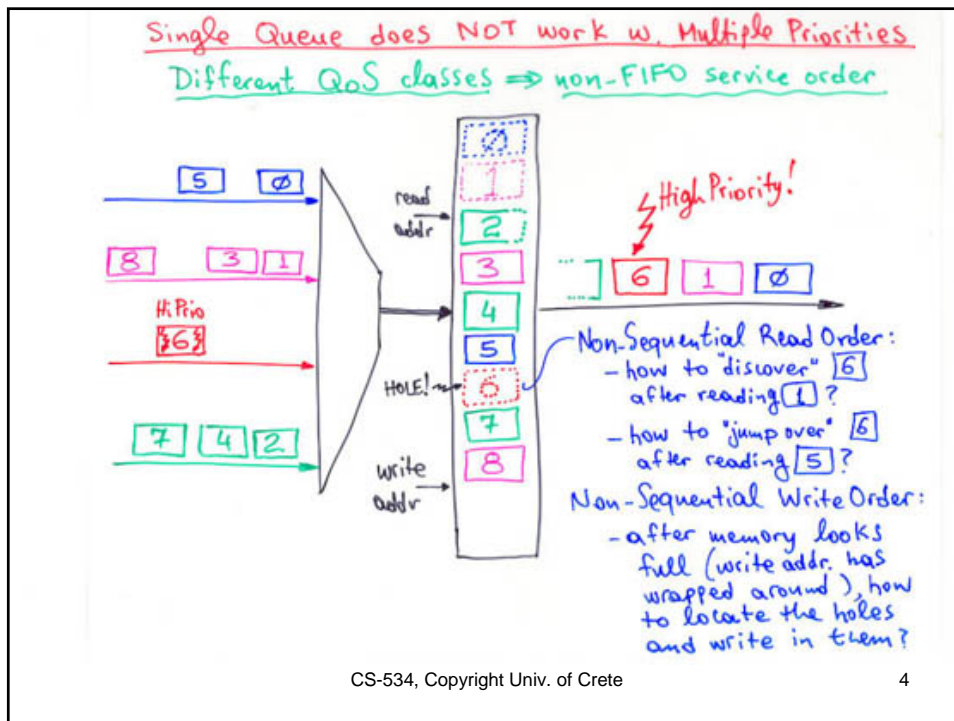 Single Queue does NOT work w. Multiple Priorities
Different QoS classes ⇒ non-FIFO service order
5 Ø
8 3 1
HiPrio
6
7 4 2
read
addr
Ø
1
2
3
4
5
HOLE! 6
7
8
write
addr
High Priority!
6 1 Ø
Non-Sequential Read Order:
- how to "discover" 6
after reading 1 ?
- how to "jump over" 6
after reading 5 ?
Non-Sequential Write Order:
- after memory looks
full (write addr. has
wrapped around), how
to locate the holes
and write in them?
CS-534, Copyright Univ. of Crete 4